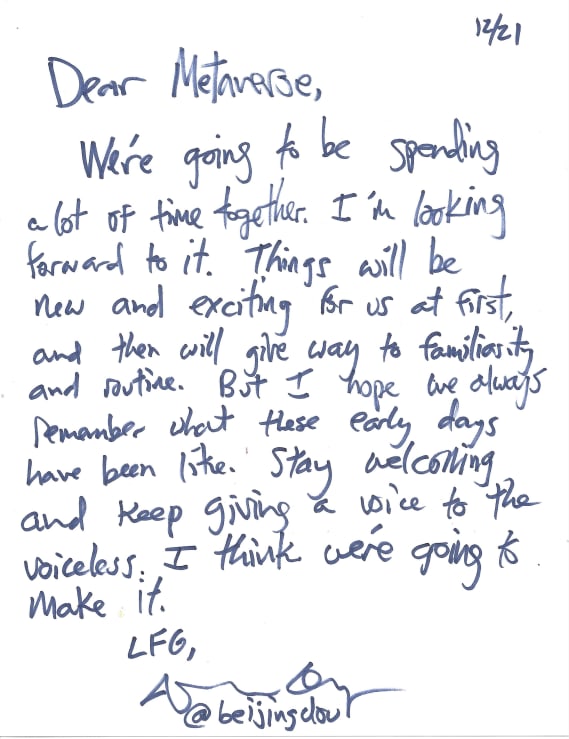 12/21
Dear Metaverse,
We're going to be spending
a lot of time together. I'm looking
forward to it. Things will be
new and exciting for us at first,
and then will give way to familiarity
and routine. But I hope we always
remember what these early days
have been like. Stay welcoming
and keep giving a voice to the
voiceless. I think we're going to
make it.
LFG,
@beijingdou